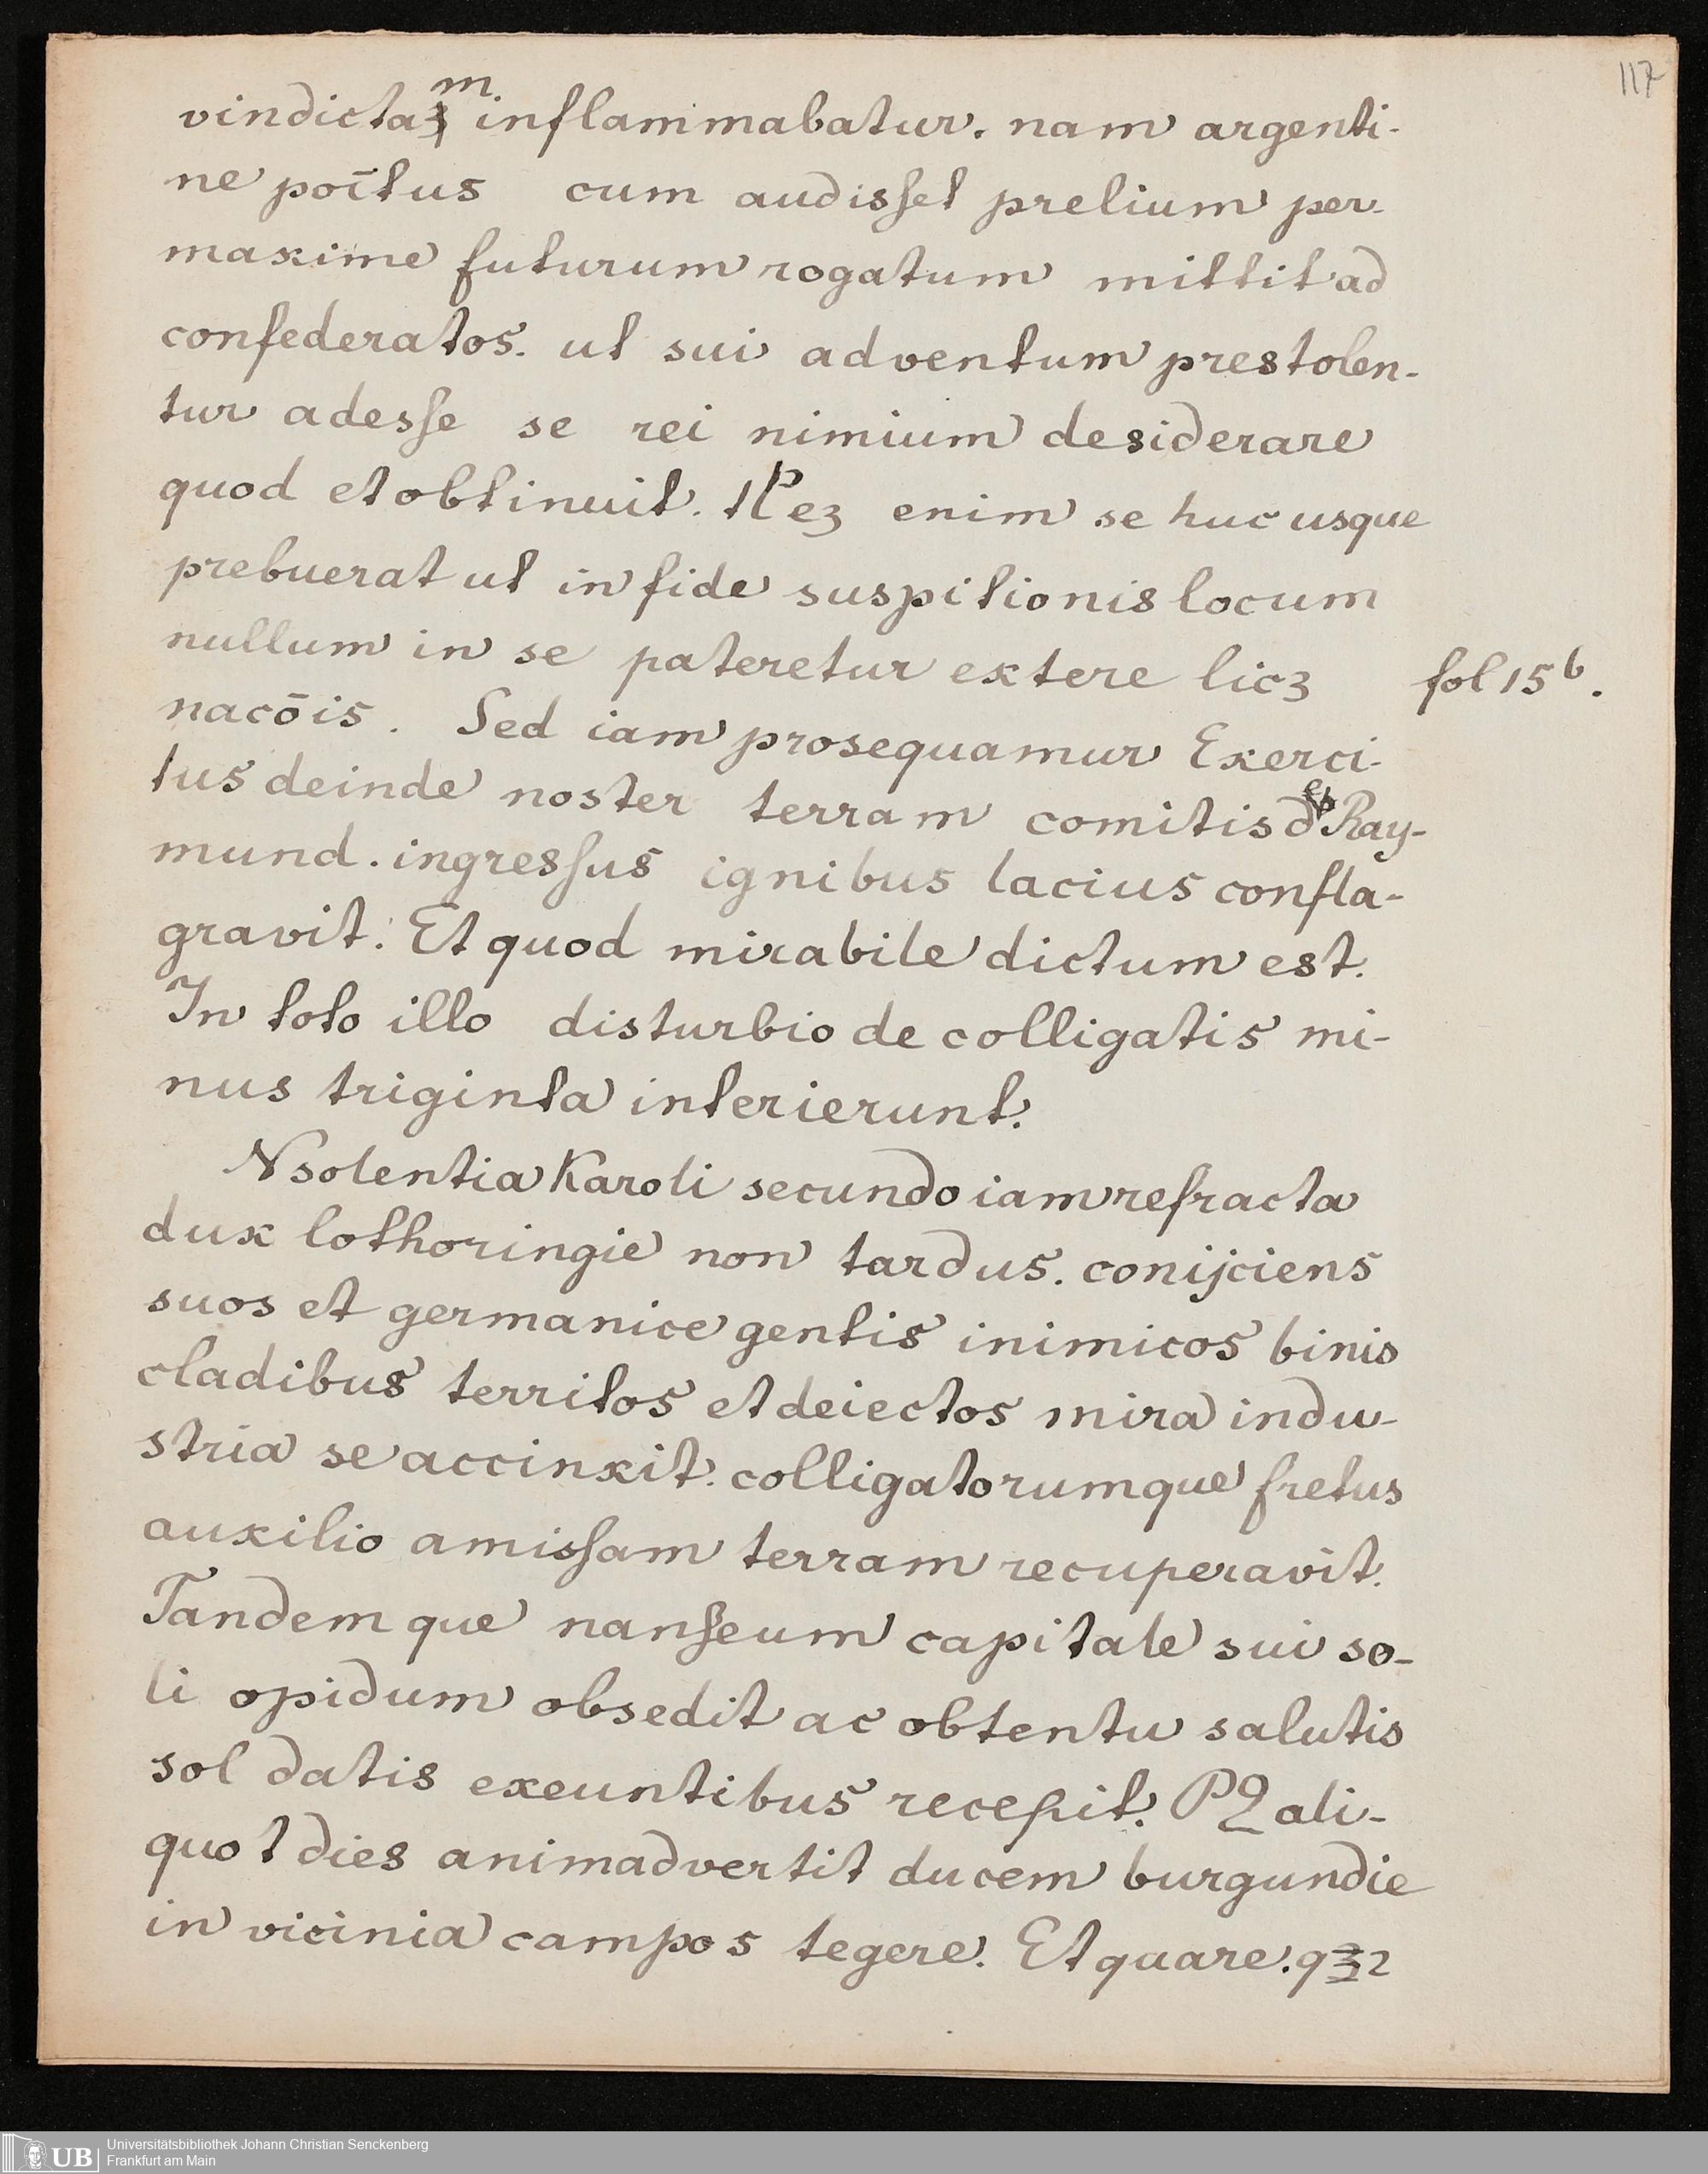 117
vindictam. inflammabatur. nam argenti-
ne poītus cum audisset prelium per-
maxime futurum rogatum mittit ad
confederatos. ut sui adventum prestolen-
tur adesse se rei nimium desiderare
quod et obtinuit. enim se huc usque
prebuerat ut in fide suspitionis locum
nullum in se pateretur extere licꝫ fol 15 b.
nacōis. Sed iam prosequamur Exerci-
tus deinde noster terram comitis de Ray-
mund. ingressus ignibus lacius confla-
gravit. Et quod mirabile dictum est.
In toto illo disturbio de colligatis mi-
nus triginta interierunt.
Nsolentia Karoli secundo iam refracta
dux lothoringie non tardus. conijciens
suos et germanice gentis inimicos binis
cladibus territos et deiectos mira indu-
stria se accinxit. colligatorumque fretus
auxilio amissam terram recuperavit.
Tandemque nanseum capitale sui so-
li opidum obsedit ac obtentu salutis
soldatis exeuntibus recepit. ali-
quot dies animadvertit ducem burgundie
in vicinia campos tegere. Et quare.
UB Universitätsbibliothek Johann Christian Senckenberg
Frankfurt am Main